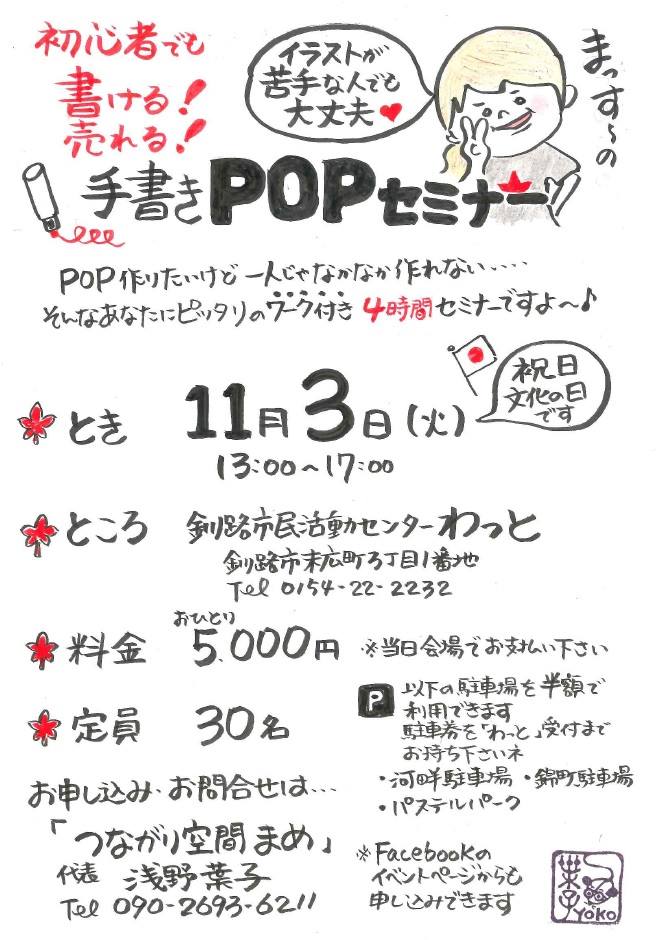 初心者でも
書ける！
売れる！
イラストが
苦手な人でも
大丈夫♥
まっす～の
手書きPOPセミナー
POP作りたいけど一人じゃなかなか作れない‥‥
そんなあなたにピッタリのワーク付き4時間セミナーですよ～♪
とき 11月3日(火)
祝日
文化の日
です
13:00～17:00
ところ 釧路市民活動センターわっと
釧路市末広町3丁目1番地
Tel 0154-22-2232
おひとり
料金 5,000円 ※当日会場でお支払い下さい
定員 30名
P 以下の駐車場を半額で
利用できます
駐車券を「わっと」受付まで
お持ち下さいネ
・河畔駐車場 ・錦町駐車場
・パステルパーク
お申し込み・お問合せは…
「つながり空間 まめ」
代表 浅野葉子
Tel 090-2693-6211
※Facebookの
イベントページからも
申し込みできます
葉子
YOKO